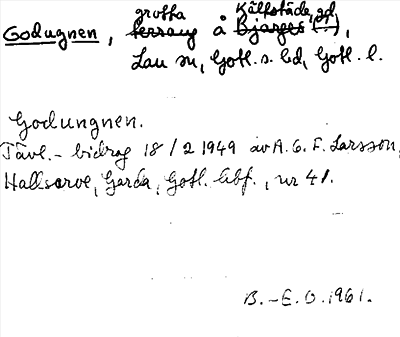 grotta Källstäde, gd
Godugnen, terrang å Bjärges (?),
Lau sn, Gotl. s. hd, Gotl. l.
Godungnen.
Tävl.- bidrag 18/2 1949 av A. G. F. Larsson,
Hallsarve, Garda, Gotl. , nr 41.
B.-E. O. 1961.